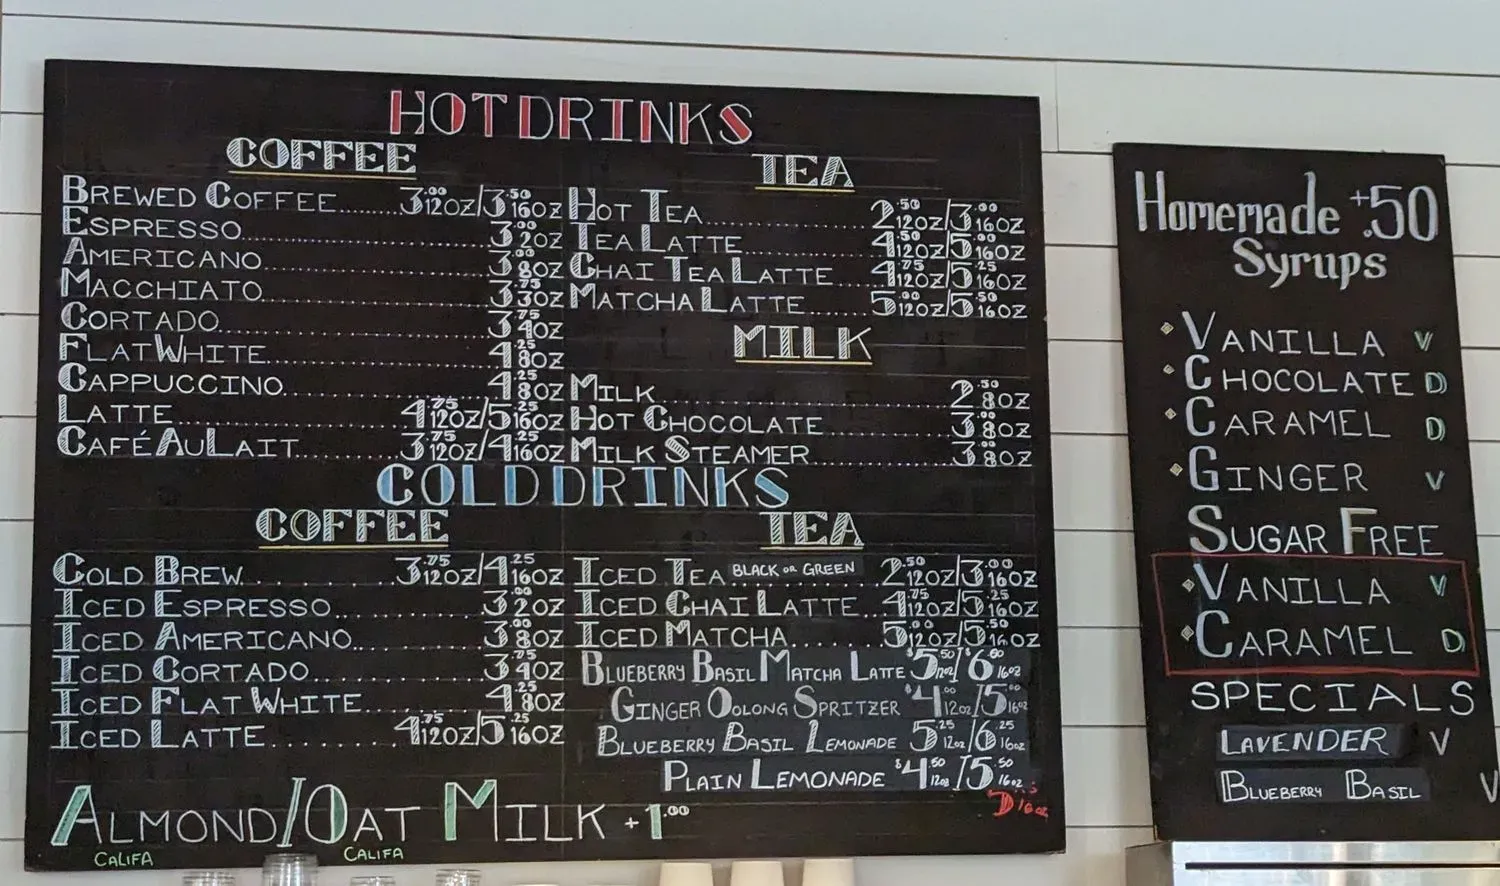 HOT DRINKS
COFFEE
BREWED COFFEE 3.00 12OZ/3.50 16OZ
ESPRESSO 3.00 2OZ
AMERICANO 3.00 8OZ
MACCHIATO 3.75 3OZ
CORTADO 3.75 4OZ
FLAT WHITE 4.25 8OZ
CAPPUCCINO 4.25 8OZ
LATTE 4.75 12OZ/5.25 16OZ
CAFÉ AU LAIT 3.75 12OZ/4.25 16OZ
TEA
HOT TEA 2.50 12OZ/3.00 16OZ
TEA LATTE 4.50 12OZ/5.00 16OZ
CHAI TEA LATTE 4.75 12OZ/5.25 16OZ
MATCHA LATTE 5.00 12OZ/5.50 16OZ
MILK
MILK 2.50 8OZ
HOT CHOCOLATE 3.00 8OZ
MILK STEAMER 3.00 8OZ
COLD DRINKS
COFFEE
COLD BREW 3.75 12OZ/4.25 16OZ
ICED ESPRESSO 3.00 2OZ
ICED AMERICANO 3.00 8OZ
ICED CORTADO 3.75 4OZ
ICED FLAT WHITE 4.25 8OZ
ICED LATTE 4.75 12OZ/5.25 16OZ
TEA
ICED TEA BLACK OR GREEN 2.50 12OZ/3.00 16OZ
ICED CHAI LATTE 4.75 12OZ/5.25 16OZ
ICED MATCHA 5.00 12OZ/5.50 16OZ
BLUEBERRY BASIL MATCHA LATTE $5.50 12oz/$6.00 16oz
GINGER OOLONG SPRITZER $4.00 12oz/5.50 16oz
BLUEBERRY BASIL LEMONADE 5.25 12oz/6.25 16oz
PLAIN LEMONADE $4.50 12oz/5.50 16oz
16oz
ALMOND/OAT MILK +1.00
CALIFA CALIFA
Homemade +.50
Syrups
VANILLA V
CHOCOLATE D
CARAMEL D
GINGER V
SUGAR FREE
VANILLA V
CARAMEL D
SPECIALS
LAVENDER V
BLUEBERRY BASIL V